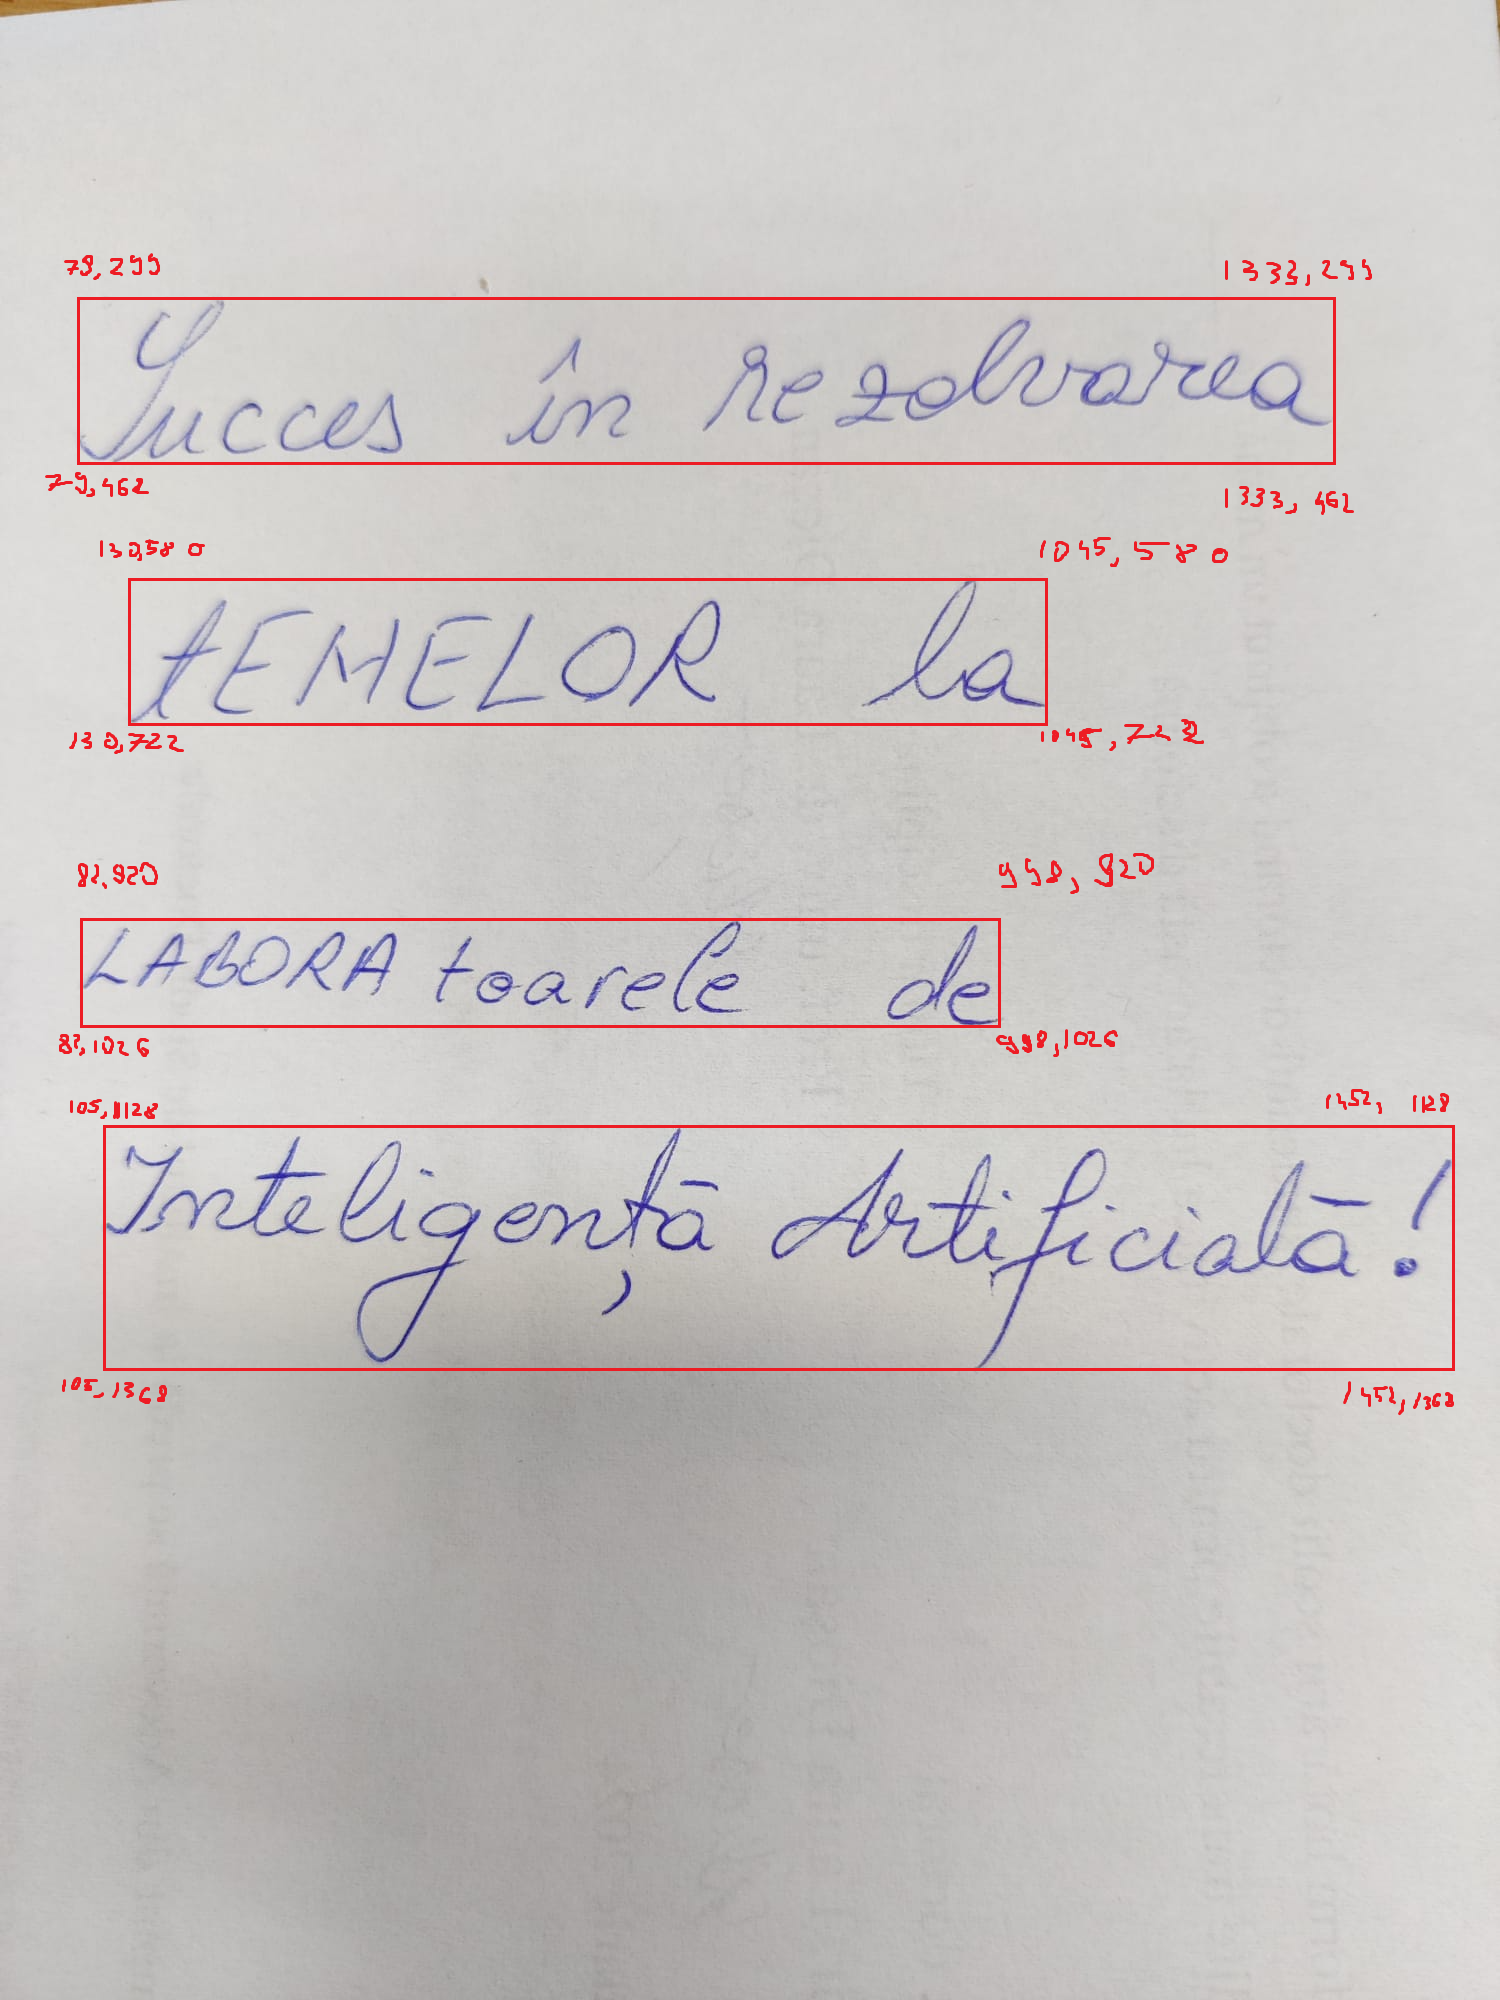 79,299 1333,299
Succes în rezolvarea
79,462 1333,462
130,580 1045,580
tEMELOR la
130,722 1045,722
82,920 998,920
LABORAtoarele de
82,1026 998,1026
105,1128 1452, 1128
Inteligență Artificială!
105,1368 1452,1368